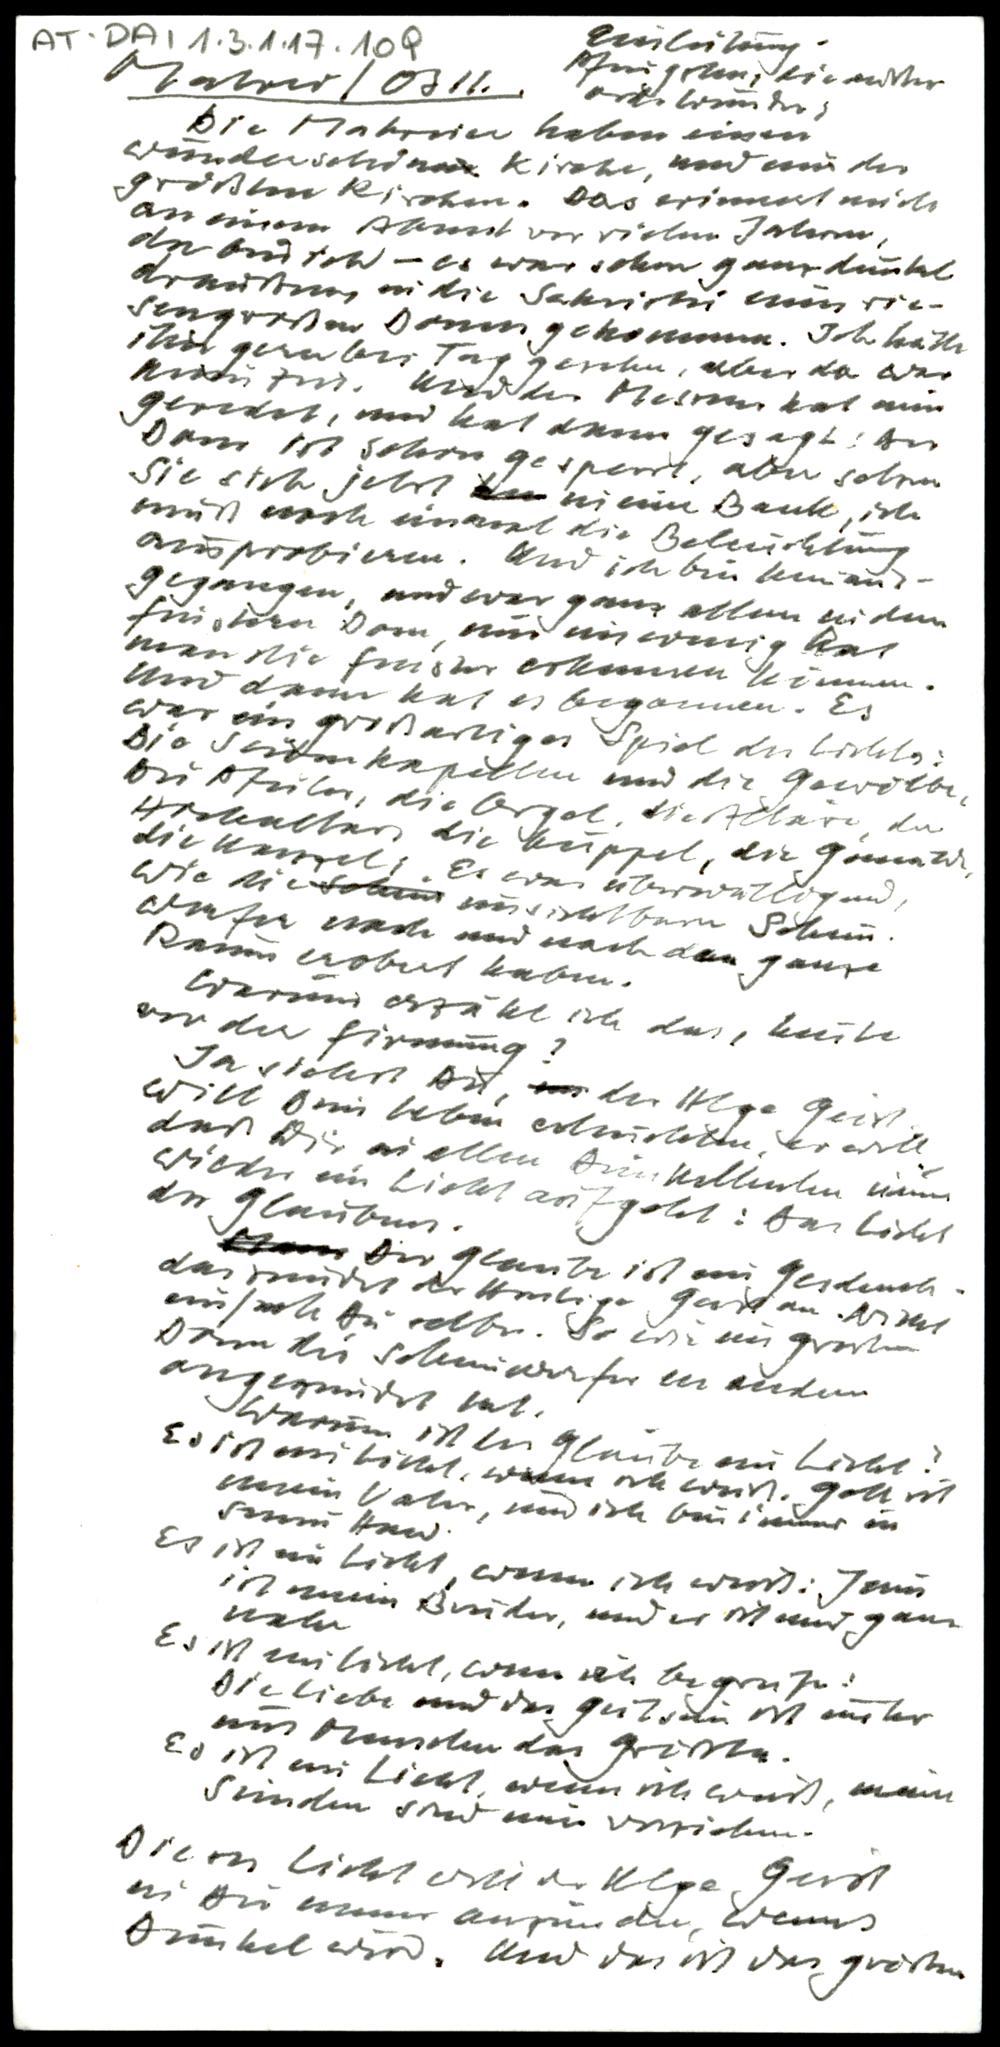 AT-DAI 1.3.1.17.109
Einleitung.
Matrei / Ostt.
Die Matreier haben einen
wunderschöne Kirche, und eine der
größten Kirchen. Das erinnert mich
an einem Abend vor vielen Jahren,
da bin ich – es war schon ganz dunkel
draußen, in die Sakristei eines rie-
sengroßen Domes gekommen. Ich hätte
ihn gerne bei Tag gesehen, aber da war
keine Zeit. Und der Mesner hat mir
geredet, und hat dann gesagt: Der
Dom ist schon gesperrt, aber setzen
Sie sich jetzt in eine Bank, ich
muß noch einmal die Beleuchtung
ausprobieren. Und ich bin hinaus-
gegangen, und war ganz allein in dem
finsteren Dom, nur ein wenig hat
man die Fenster erkennen können.
Und dann hat es begonnen. Es
war ein großartiges Spiel des Lichts:
Die Seitenkapellen und die Gewölbe,
die Pfeiler, die Orgel, die Altäre, der
Hochaltar, die Kuppel, die Gemälde,
die Kanzel; Es war überwältigend,
wie die unsichtbaren Schein-
werfer nach und nach den ganze
Raum erobert haben.
Warum erzähl ich das, heute
vor der Firmung?
Ja siehst Du, der Hlge Geist
will Dein Leben erleuchten, er will,
daß Dir in allen Dunkelheiten immer
wieder ein Licht aufgeht: Das Licht
des Glaubens.
Der Glaube ist ein Geschenk.
das zündet der Heilige Geist an. Nicht
einfach Du selber. So wie im großen
Dom die Scheinwerfer ein anderer
angezündet hat.
Warum ist der Glaube ein Licht?
Es ist ein Licht, wenn ich weiß: Gott ist
mein Vater, und ich bin immer in
seiner Hand.
Es ist ein Licht, wenn ich weiß: Jesus
ist mein Bruder, und er ist mir ganz
nahe
Es ist ein Licht, wenn ich begreife:
Die Liebe und das Gutsein ist unter
uns Menschen das Größte.
Es ist ein Licht, wenn ich weiß, meine
Sünden sind mir verziehen.
Dieses Licht will der Hlge Geist
in Dir immer anzünden, wenns
Dunkel wird. Und das ist das größte